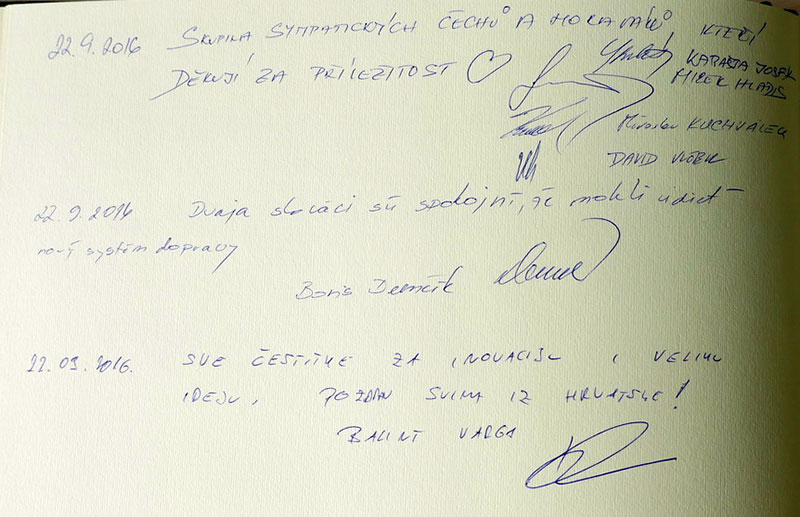 22.9.2016 SKUPINA SYMPATICKÝCH ČECHŮ A MORAVÁKŮ KTEŘÍ
DĚKUJÍ ZA PŘÍLEŽITOST ♡
KARAŠTA JOSEF
MIREK HLADIS
Miroslav KUCHVÁLEK
DAVID
22.9.2016 Dvaja slováci sú spokojní, že mohli vidieť
nový systém dopravy
Boris Demčík
22.09.2016. SVE ČESTITKE ZA INOVACIJU I VELIKU
IDEJU, POZDRAV SVIMA IZ HRVATSKE!
BALINT VARGA